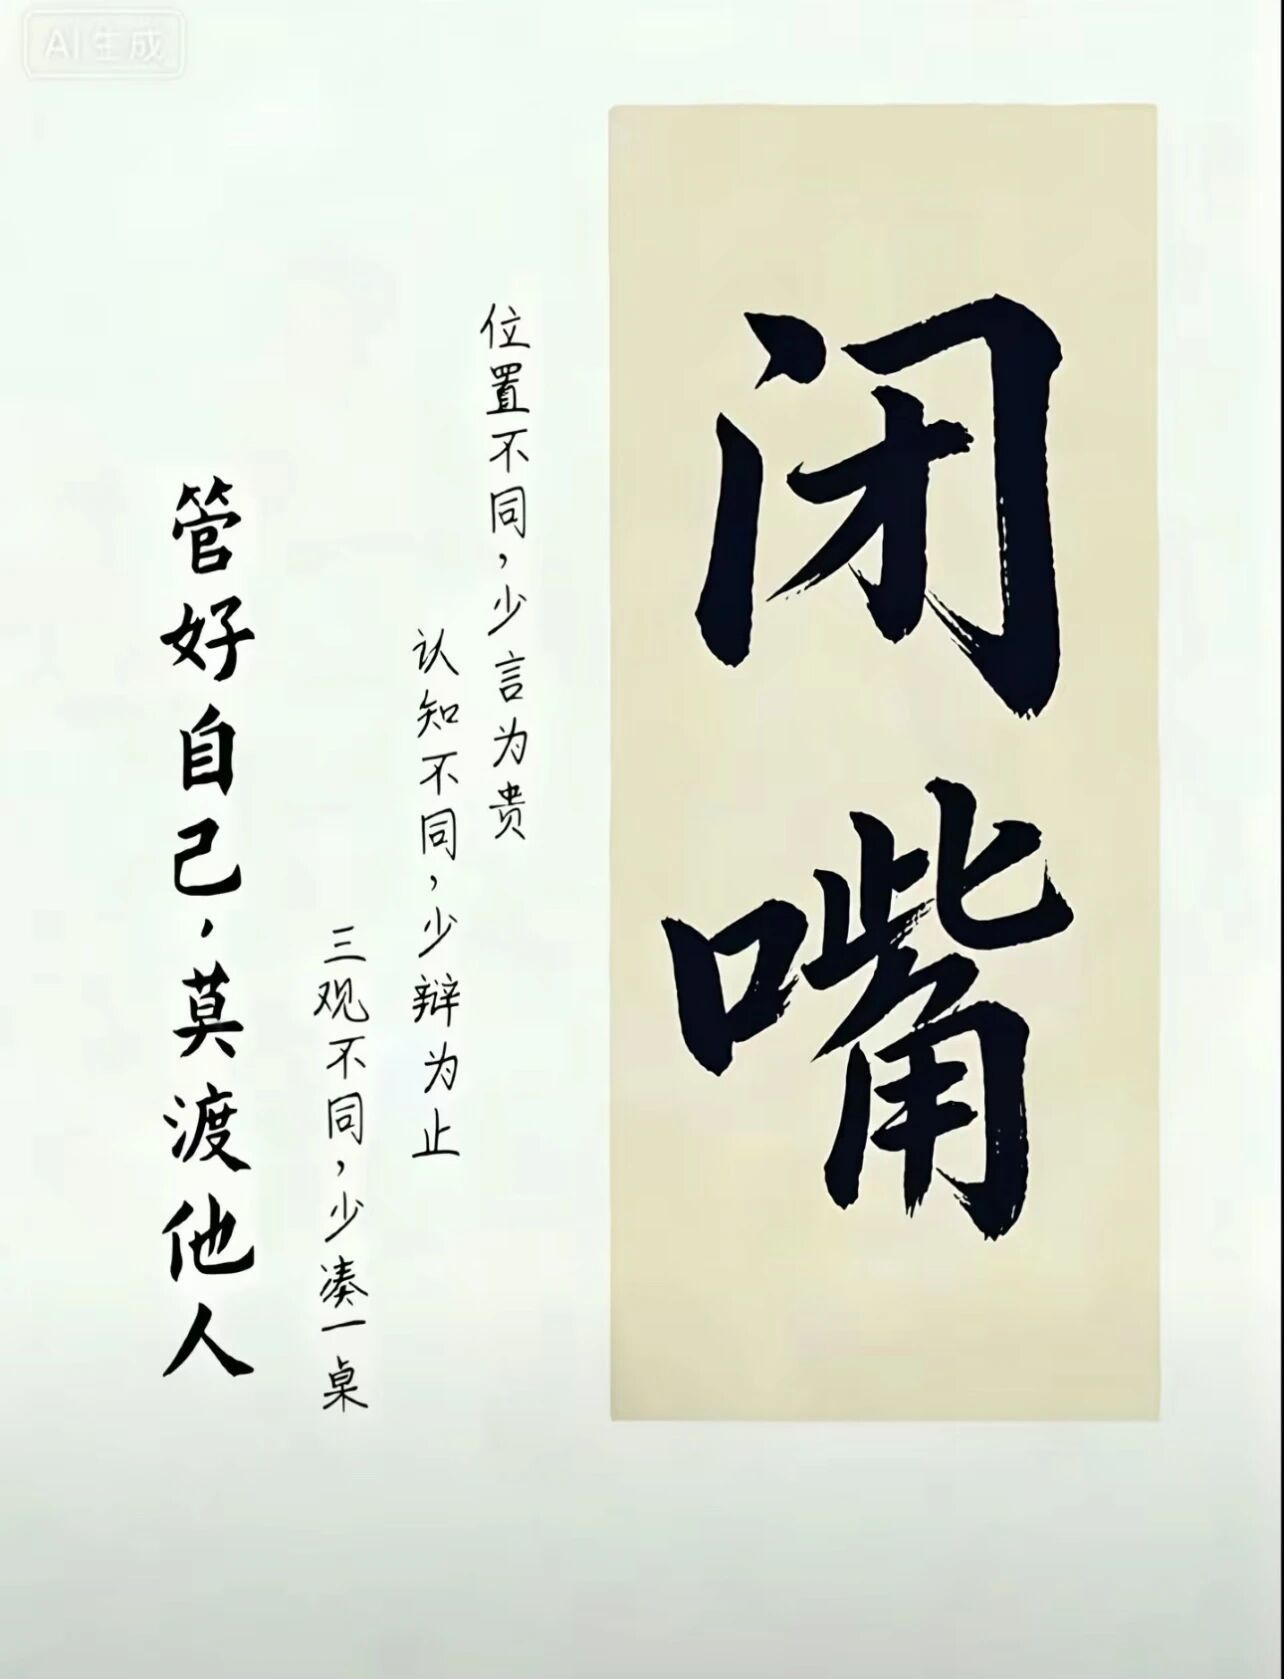 AI生成
闭嘴
位置不同，少言为贵
认知不同，少辩为止
三观不同，少凑一桌
管好自己，莫渡他人